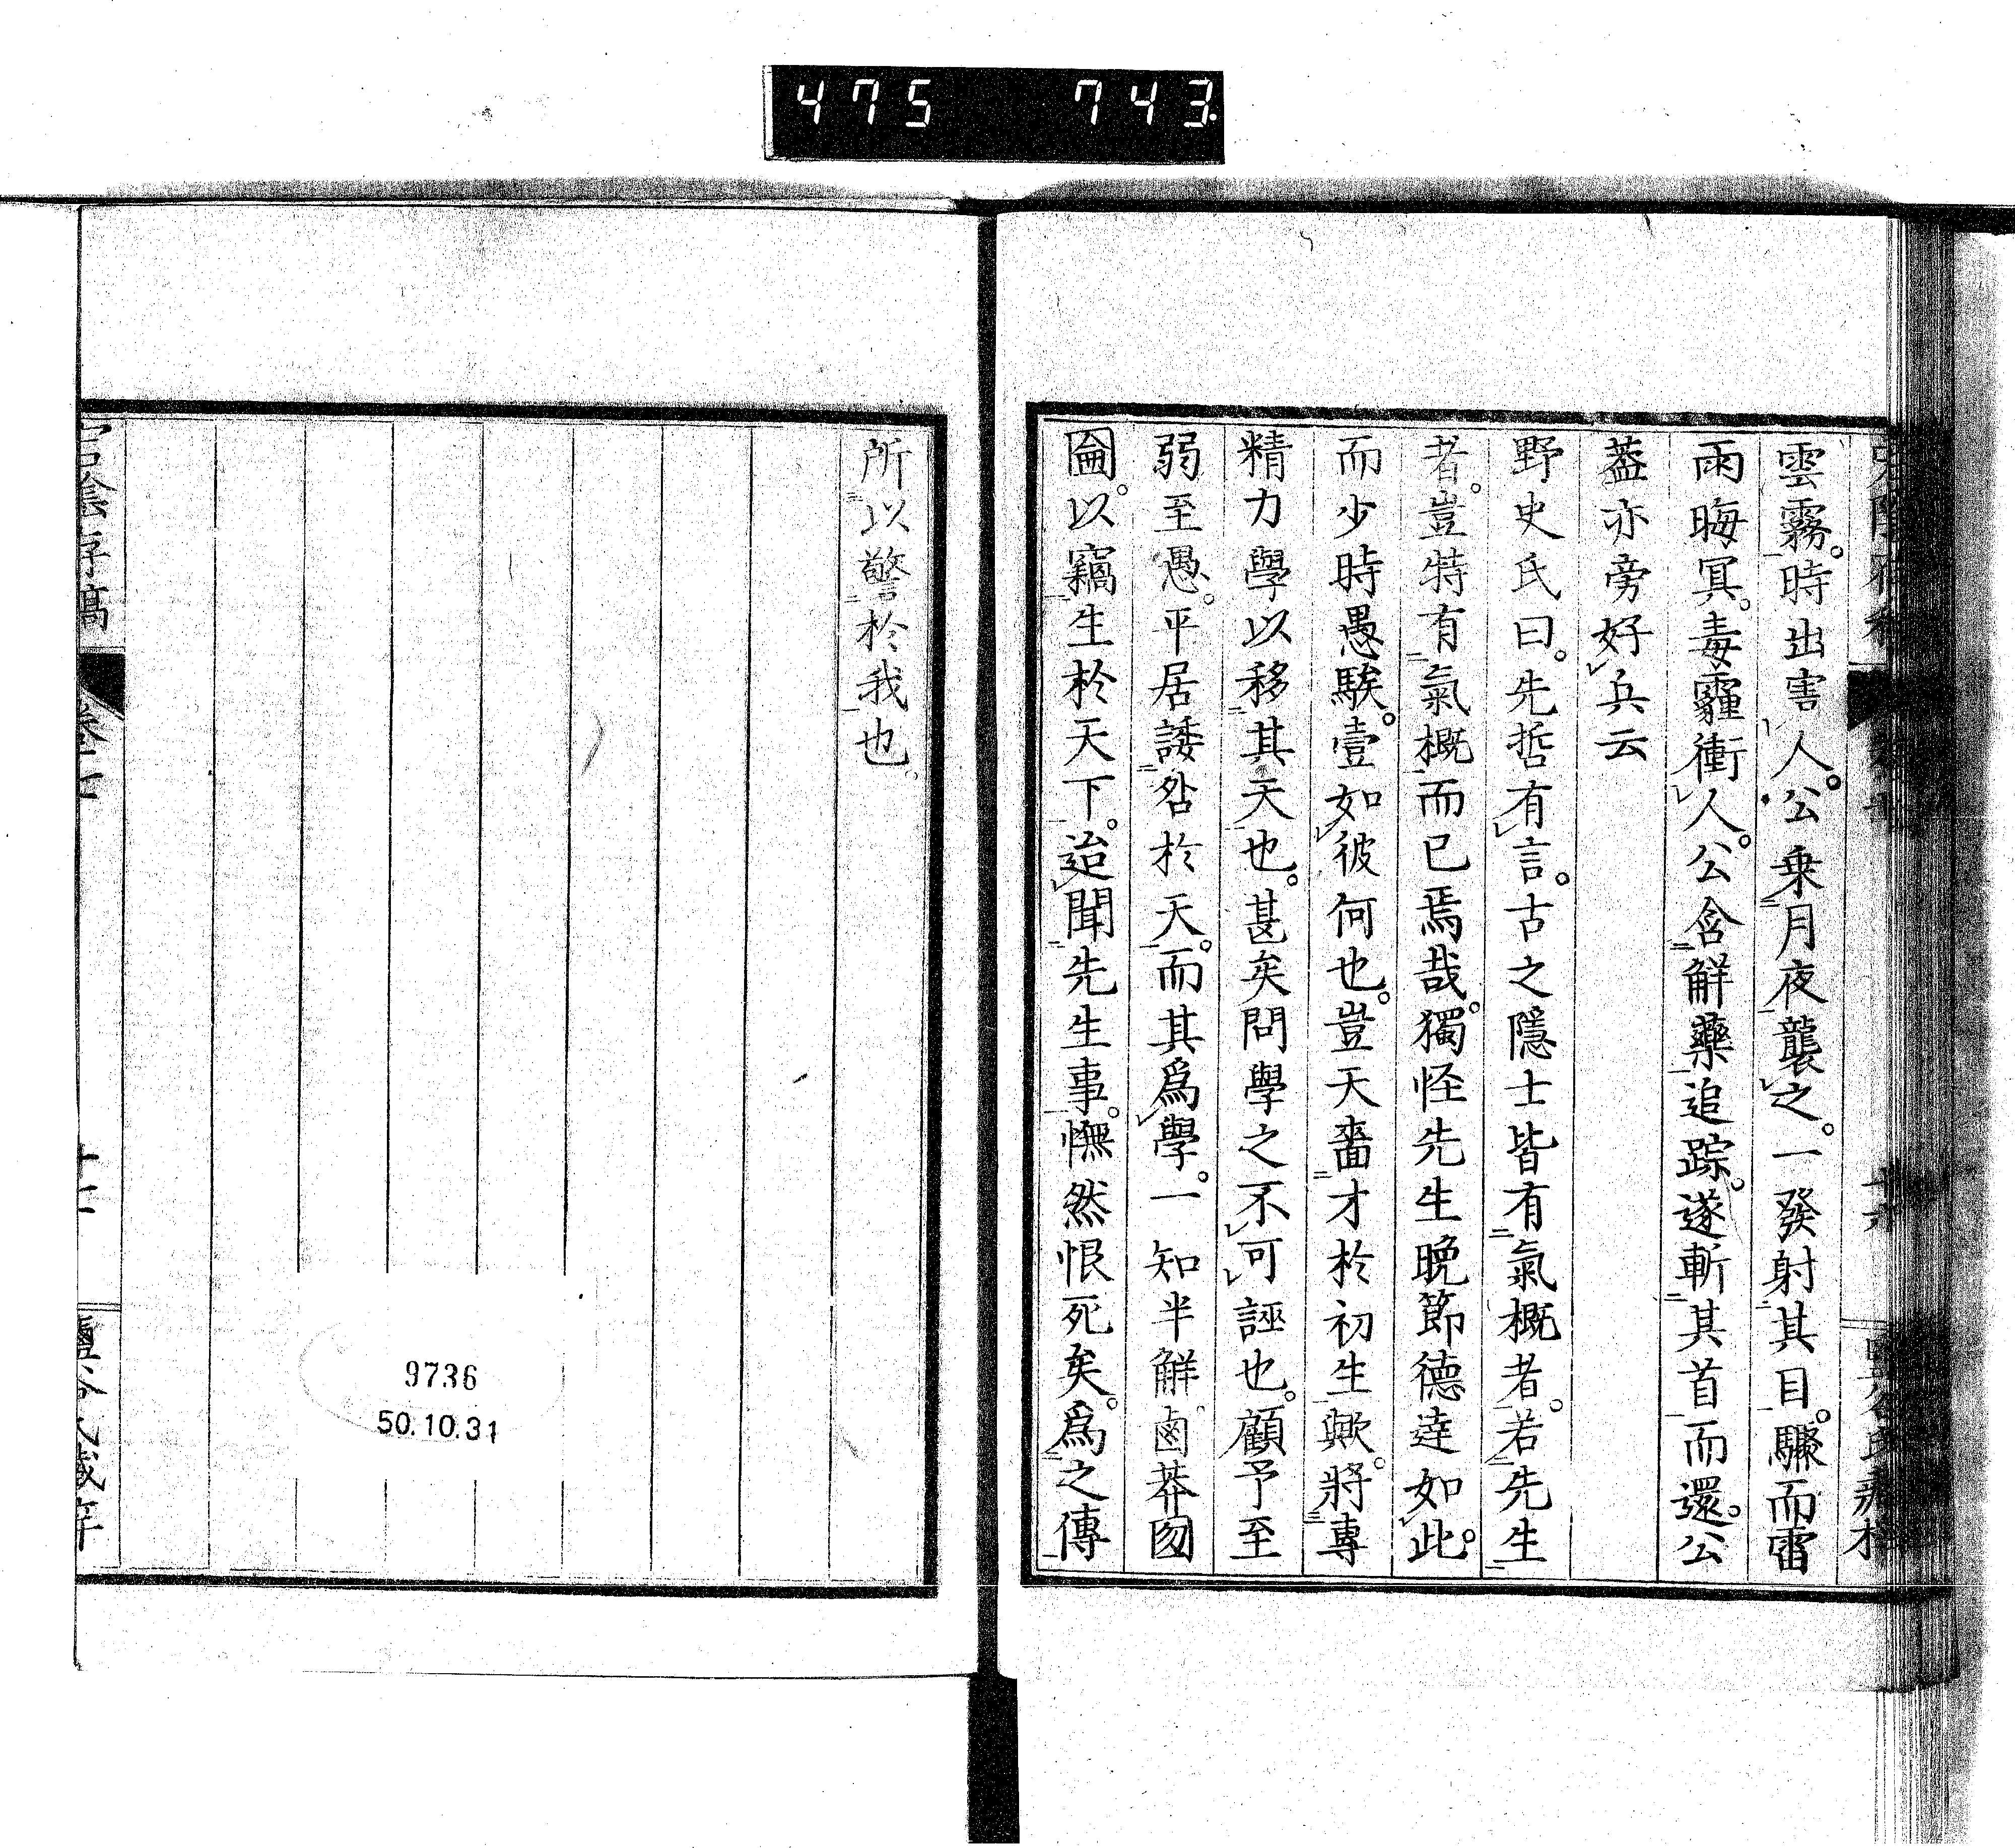 475 743
雲霧。時出害人。公乗月夜襲之。一發射其目。驟而雷
雨晦冥。毒霾衝人。公含解藥追踪。遂斬其首而還。公
葢亦旁好兵云
野史氏曰。先哲有言。古之隱士皆有氣概者。若先生
者。豈特有氣概而已焉哉。獨怪先生晩節德達如此。
而少時愚騃。壹如彼何也。豈天嗇才於初生歟。將專
精力學以移其天也。甚矣問學之不可誣也。顧予至
弱至愚。平居諉咎於天。而其爲學。一知半解鹵莽囫
圇。以竊生於天下。迨聞先生事。憮然恨死矣。爲之傳
所以警於我也。
宕陰存稿
卷十二
9736
50.10.31